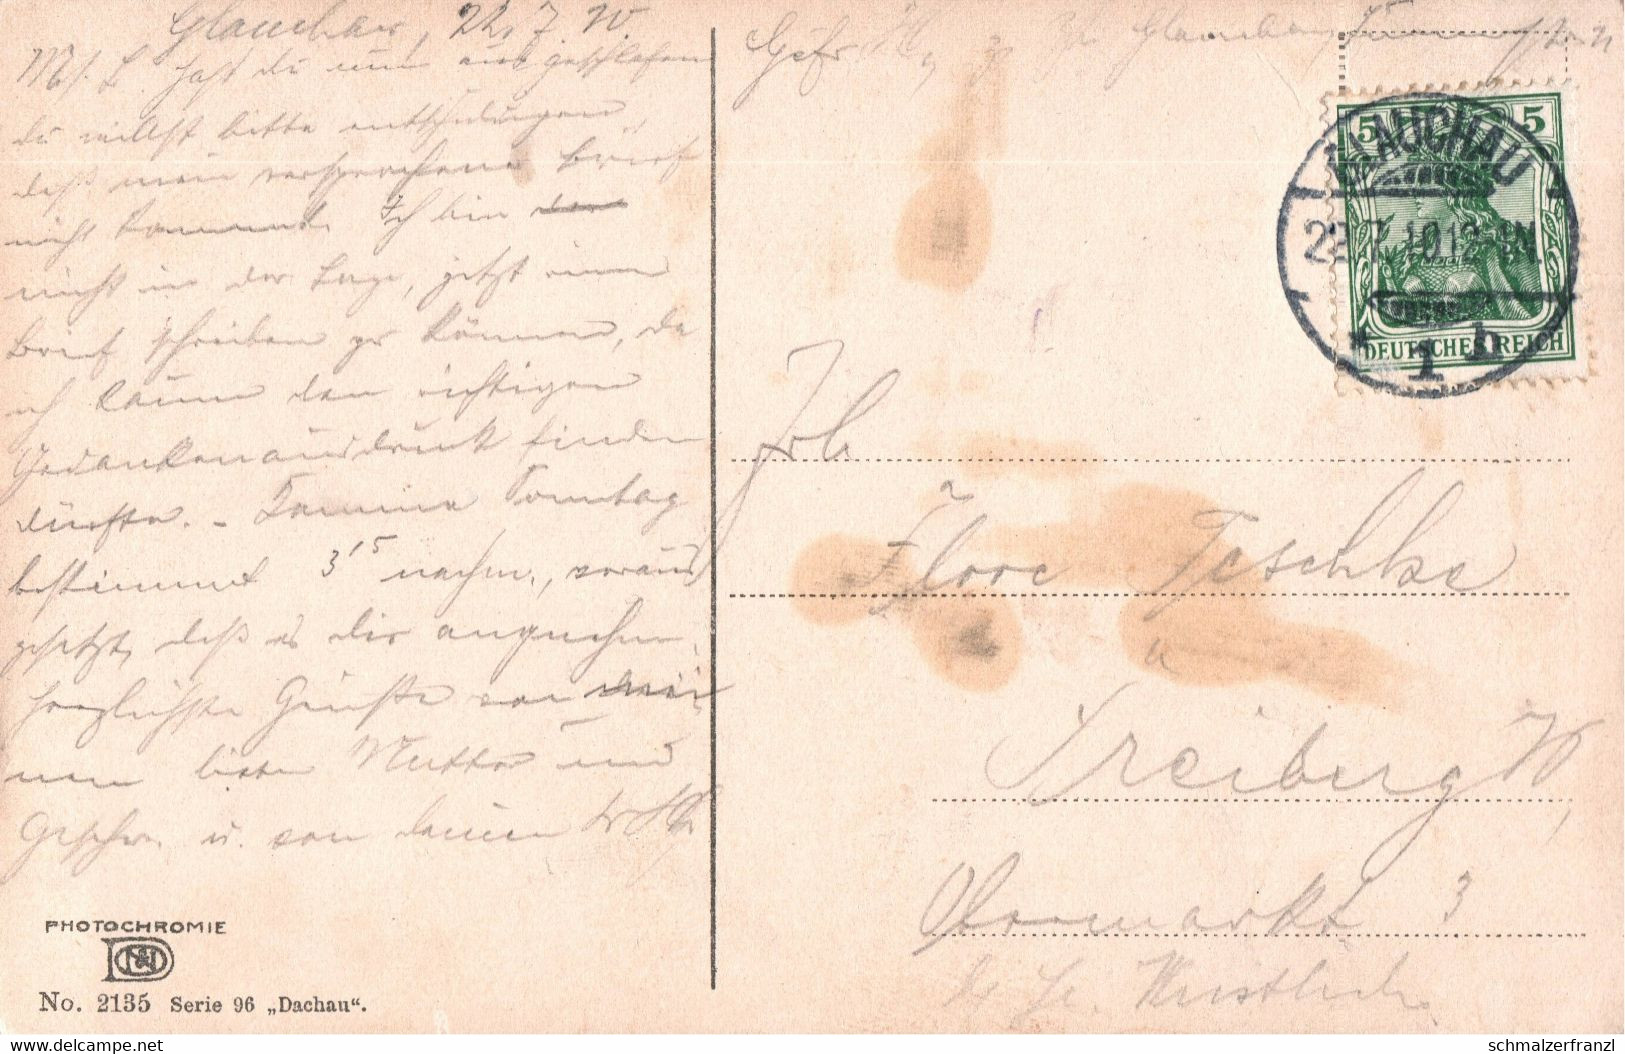 Glauchau, 22. 7. 10.
M. l. L. hast du nun ausgeschlafen
du willst bitte entschuldigen,
daß mein versprochener Brief
nicht kommt. Ich bin
nicht in der Lage, jetzt einen
Brief schreiben zu können, da
ich kaum den richtigen
Gedankenausdruck finden
dürfte. – Komme Sonntag
bestimmt 3 15 nachm., voraus
gesetzt, daß es dir angenehm.
Herzlichste Grüße von
nen lieben Mutter und
Geschw. u. von deinem
PHOTOCHROMIE
No. 2135 Serie 96 „Dachau“.
Glauchau
GLAUCHAU
5 5
7.10.12-1N.
DEUTSCHES REICH
* 1 b
Frl.
Flore Teschke
Freiberg
Obermarkt 3
schmalzerfranzl
www.delcampe.net